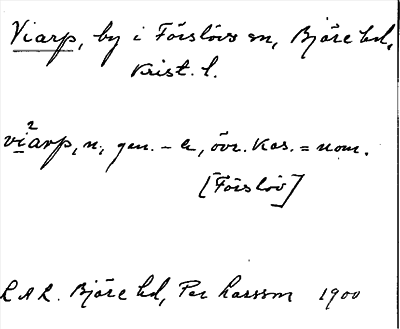 Viarp, by i Förslövs sn, Bjäre hd,
Krist. l.
vi²arp, n., gen. - a, övr. kas. = nom.
[Förslöv]
L.A.L. Bjäre hd, Per Larsson 1900